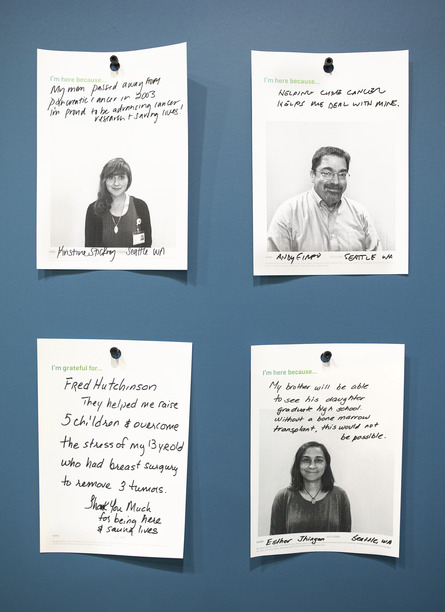 I'm here because...
My mom passed away from
pancreatic cancer in 2003
i'm proud to be advancing cancer
research + saving lives!
Seattle WA
I'm here because...
HELPING CURE CANCER
HELPS ME DEAL WITH MINE.
ANDY
SEATTLE WA
I'm grateful for...
FRED HUTCHINSON
They helped me raise
5 children & overcome
the stress of my 13 yr old
who had breast surgury
to remove 3 tumors.
Thank You Much
for being here
& saving lives
I'm here because...
My brother will be able
to see his daughter
graduate high school.
without a bone marrow
transplant, this would not
be possible.
Esther
Seattle, WA